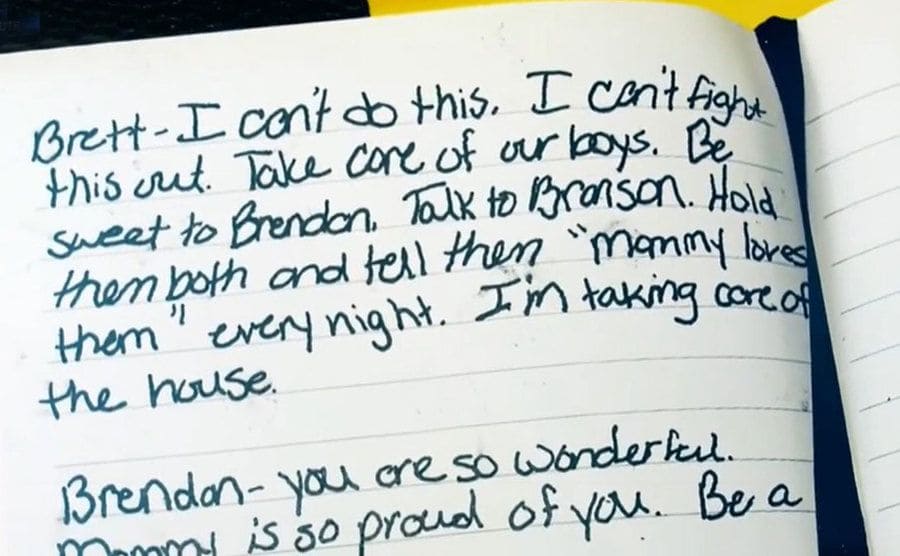 Brett - I can't do this. I can't fight
this out. Take care of our boys. Be
sweet to Brendan. Talk to Branson. Hold
them both and tell them "mommy loves
them" every night. I'm taking care of
the house.
Brendan - you are so wonderful.
Mommy is so proud of you. Be a